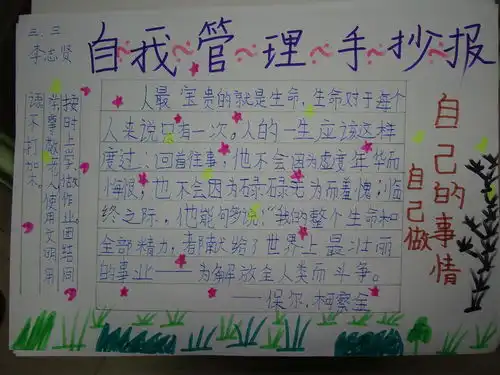 三.三
李志贤
自我~管~理~手抄报
人最宝贵的就是生命,生命对于每个
人来说只有一次。人的一生应该这样
度过:回首往事,他不会因为虚度年华而
悔恨;也不会因为碌碌无为而羞愧;临
终之际,他能够说:“我的整个生命和
全部精力,都献给了世界上最壮丽
的事业——为解放全人类而斗争。
——保尔.柯察金
按时上学做作业团结同
学尊敬老人使用文明用
语不打架
自己的事情
自己做